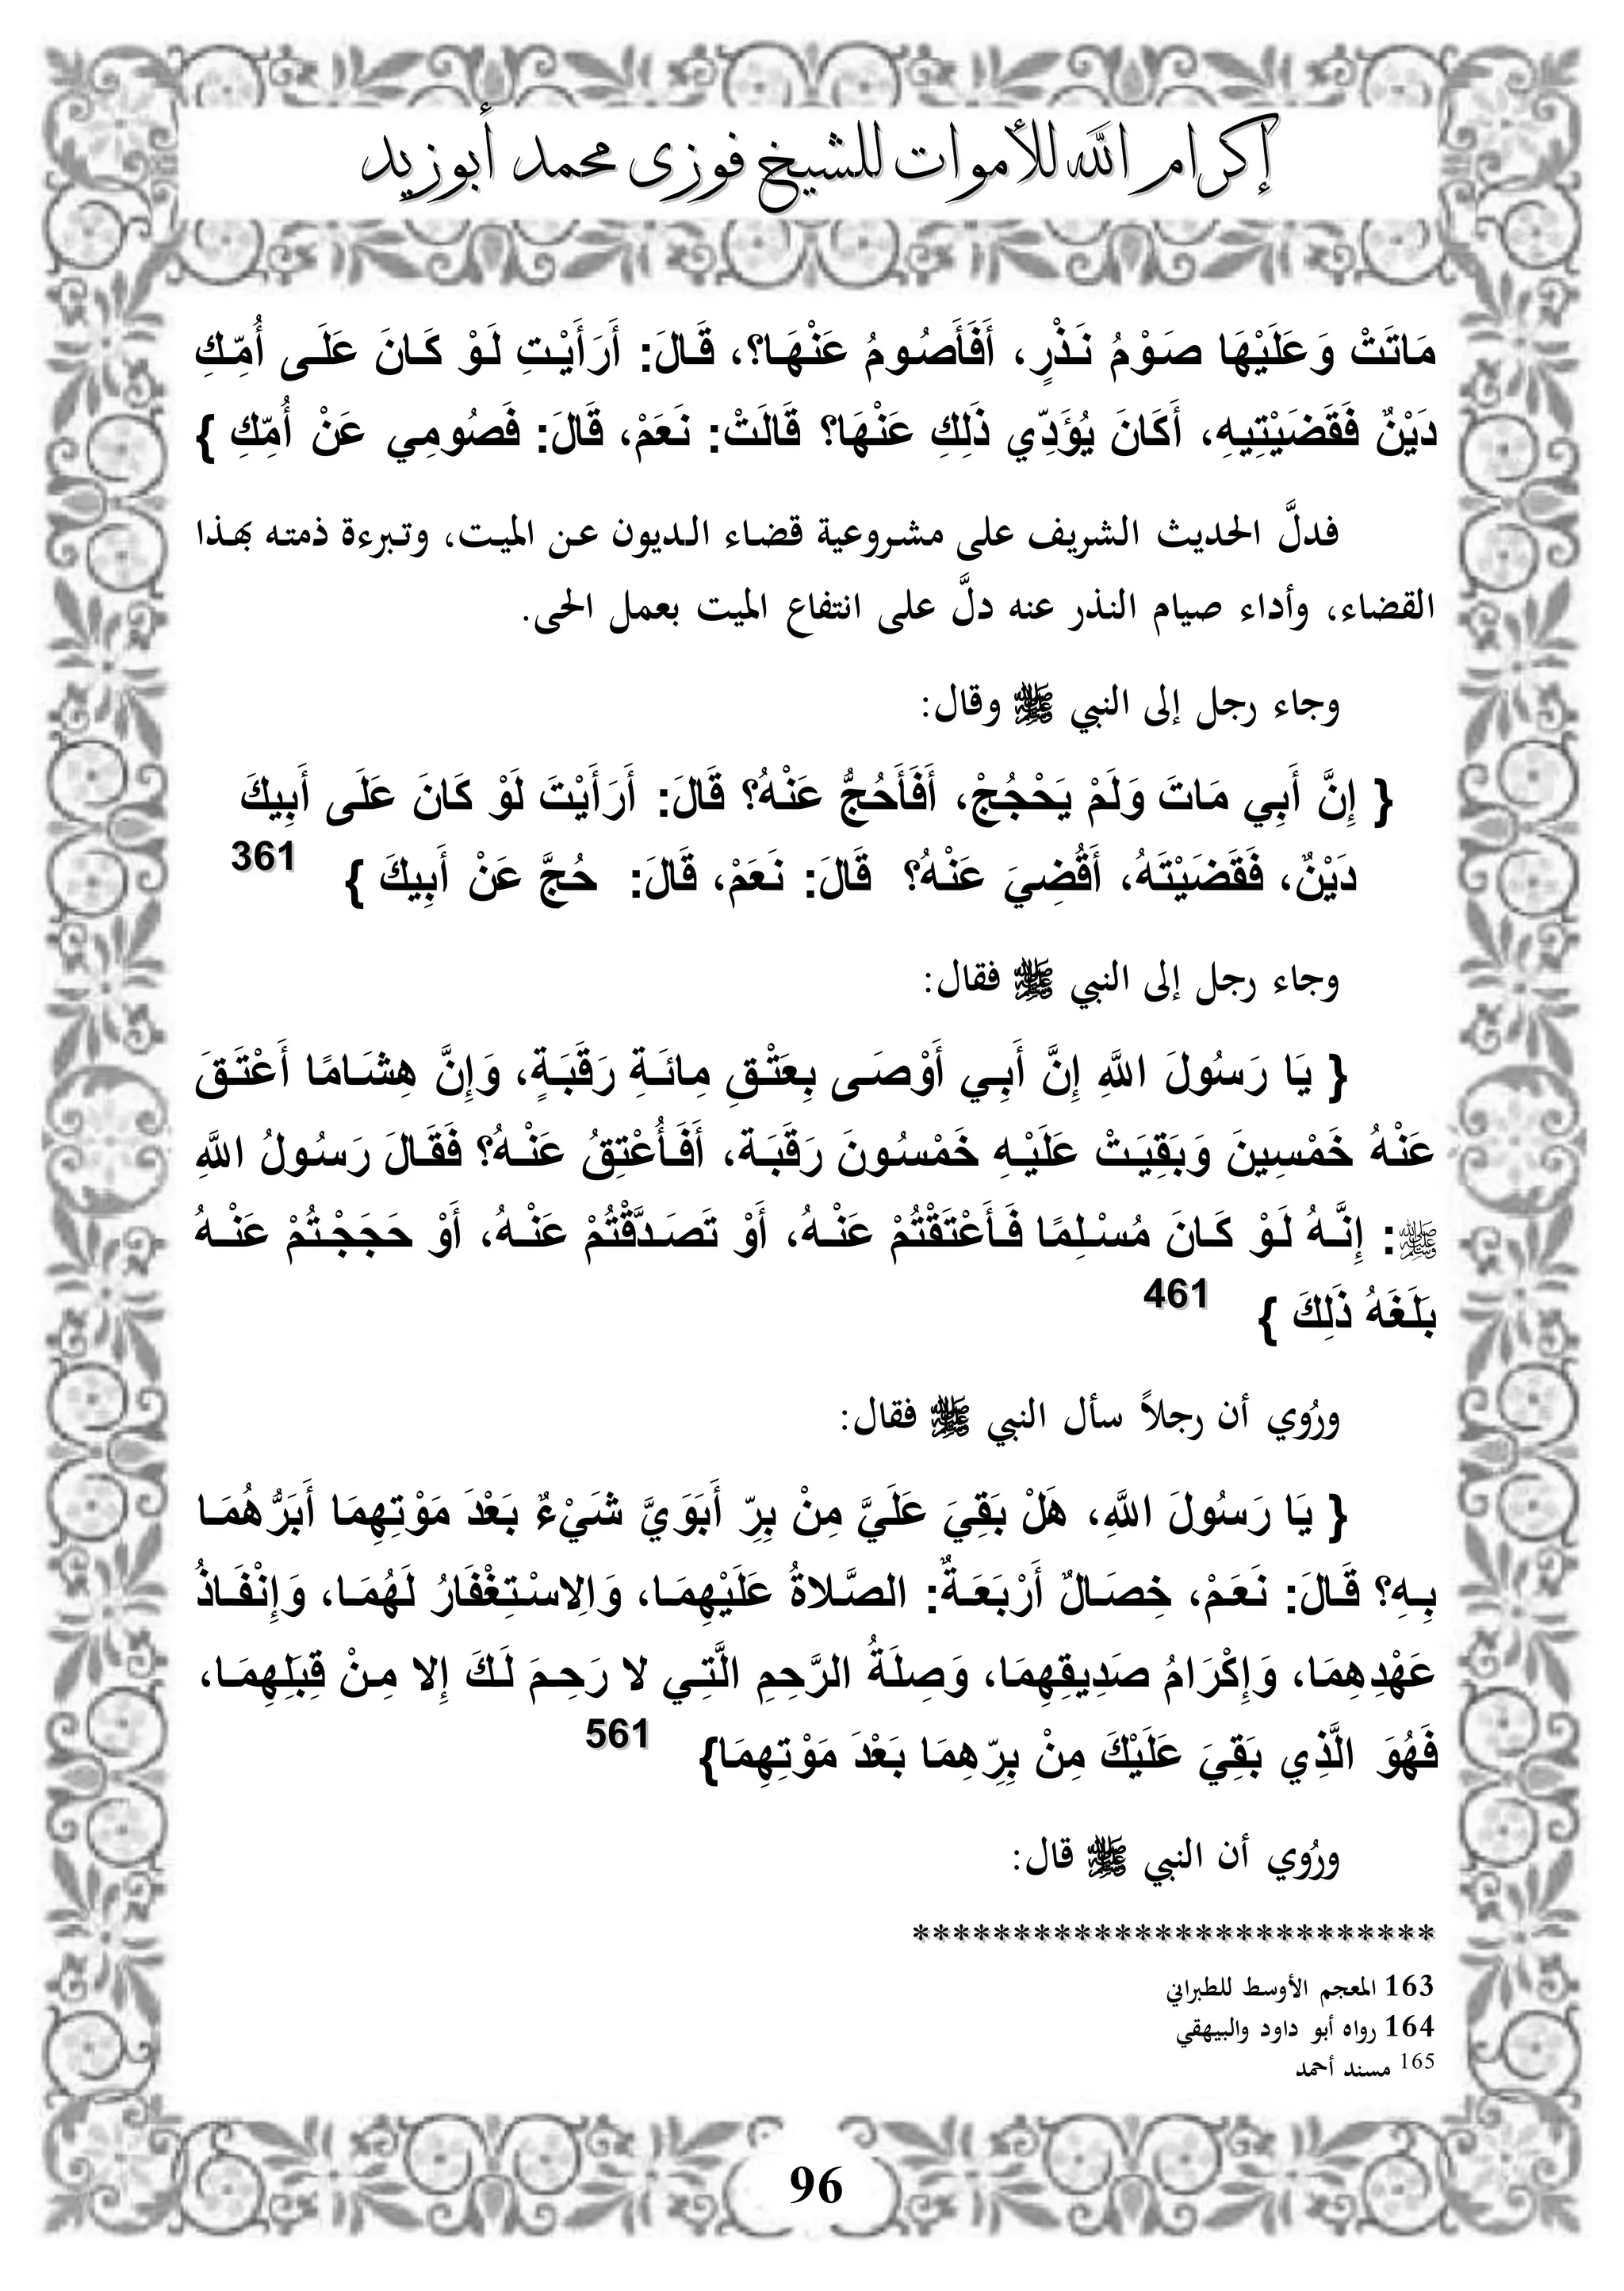 إكرام الله للأموات للشيخ فوزى محمد أبوزيد
مَاتَتْ وَعَلَيْهَا صَوْمُ نَذْرٍ، أَفَأَصُومُ عَنْهَا؟، قَالَ: أَرَأَيْتِ لَوْ كَانَ عَلَى أُمِّكِ
دَيْنٌ فَقَضَيْتِيهِ، أَكَانَ يُؤَدِّي ذَلِكِ عَنْهَا؟ قَالَتْ: نَعَمْ، قَالَ: فَصُومِي عَنْ أُمِّكِ }
فدلَّ الحديث الشريف على مشروعية قضاء الديون عن الميت، وتبرءة ذمته بهذا
القضاء، وأداء صيام النذر عنه دلَّ على انتفاع الميت بعمل الحى.
وجاء رجل إلى النبي ﷺ وقال:
{ إِنَّ أَبِي مَاتَ وَلَمْ يَحْجُجْ، أَفَأَحُجُّ عَنْهُ؟ قَالَ: أَرَأَيْتَ لَوْ كَانَ عَلَى أَبِيكَ
دَيْنٌ، فَقَضَيْتَهُ، أَقُضِيَ عَنْهُ؟ قَالَ: نَعَمْ، قَالَ: حُجَّ عَنْ أَبِيكَ } 361
وجاء رجل إلى النبي ﷺ فقال:
{ يَا رَسُولَ اللَّهِ إِنَّ أَبِي أَوْصَى بِعَتْقِ مِائَةِ رَقَبَةٍ، وَإِنَّ هِشَامًا أَعْتَقَ
عَنْهُ خَمْسِينَ وَبَقِيَتْ عَلَيْهِ خَمْسُونَ رَقَبَة، أَفَأُعْتِقُ عَنْهُ؟ فَقَالَ رَسُولُ اللَّهِ
ﷺ: إِنَّهُ لَوْ كَانَ مُسْلِمًا فَأَعْتَقْتُمْ عَنْهُ، أَوْ تَصَدَّقْتُمْ عَنْهُ، أَوْ حَجَجْتُمْ عَنْهُ
بَلَغَهُ ذَلِكَ } 461
ورُوي أن رجلاً سأل النبي ﷺ فقال:
{ يَا رَسُولَ اللَّهِ، هَلْ بَقِيَ عَلَيَّ مِنْ بِرِّ أَبَوَيَّ شَيْءٌ بَعْدَ مَوْتِهِمَا أَبَرُّهُمَا
بِهِ؟ قَالَ: نَعَمْ، خِصَالٌ أَرْبَعَةٌ: الصَّلاةُ عَلَيْهِمَا، وَاِلاسْتِغْفَارُ لَهُمَا، وَإِنْفَاذُ
عَهْدِهِمَا، وَإِكْرَامُ صَدِيقِهِمَا، وَصِلَةُ الرَّحِمِ الَّتِي لا رَحِمَ لَكَ إِلا مِنْ قِبَلِهِمَا،
فَهُوَ الَّذِي بَقِيَ عَلَيْكَ مِنْ بِرِّهِمَا بَعْدَ مَوْتِهِمَا} 561
ورُوي أن النبي ﷺ قال:
**************************
163 المعجم الأوسط للطبراني
164 رواه أبو داود والبيهقي
165 مسند أحمد
96